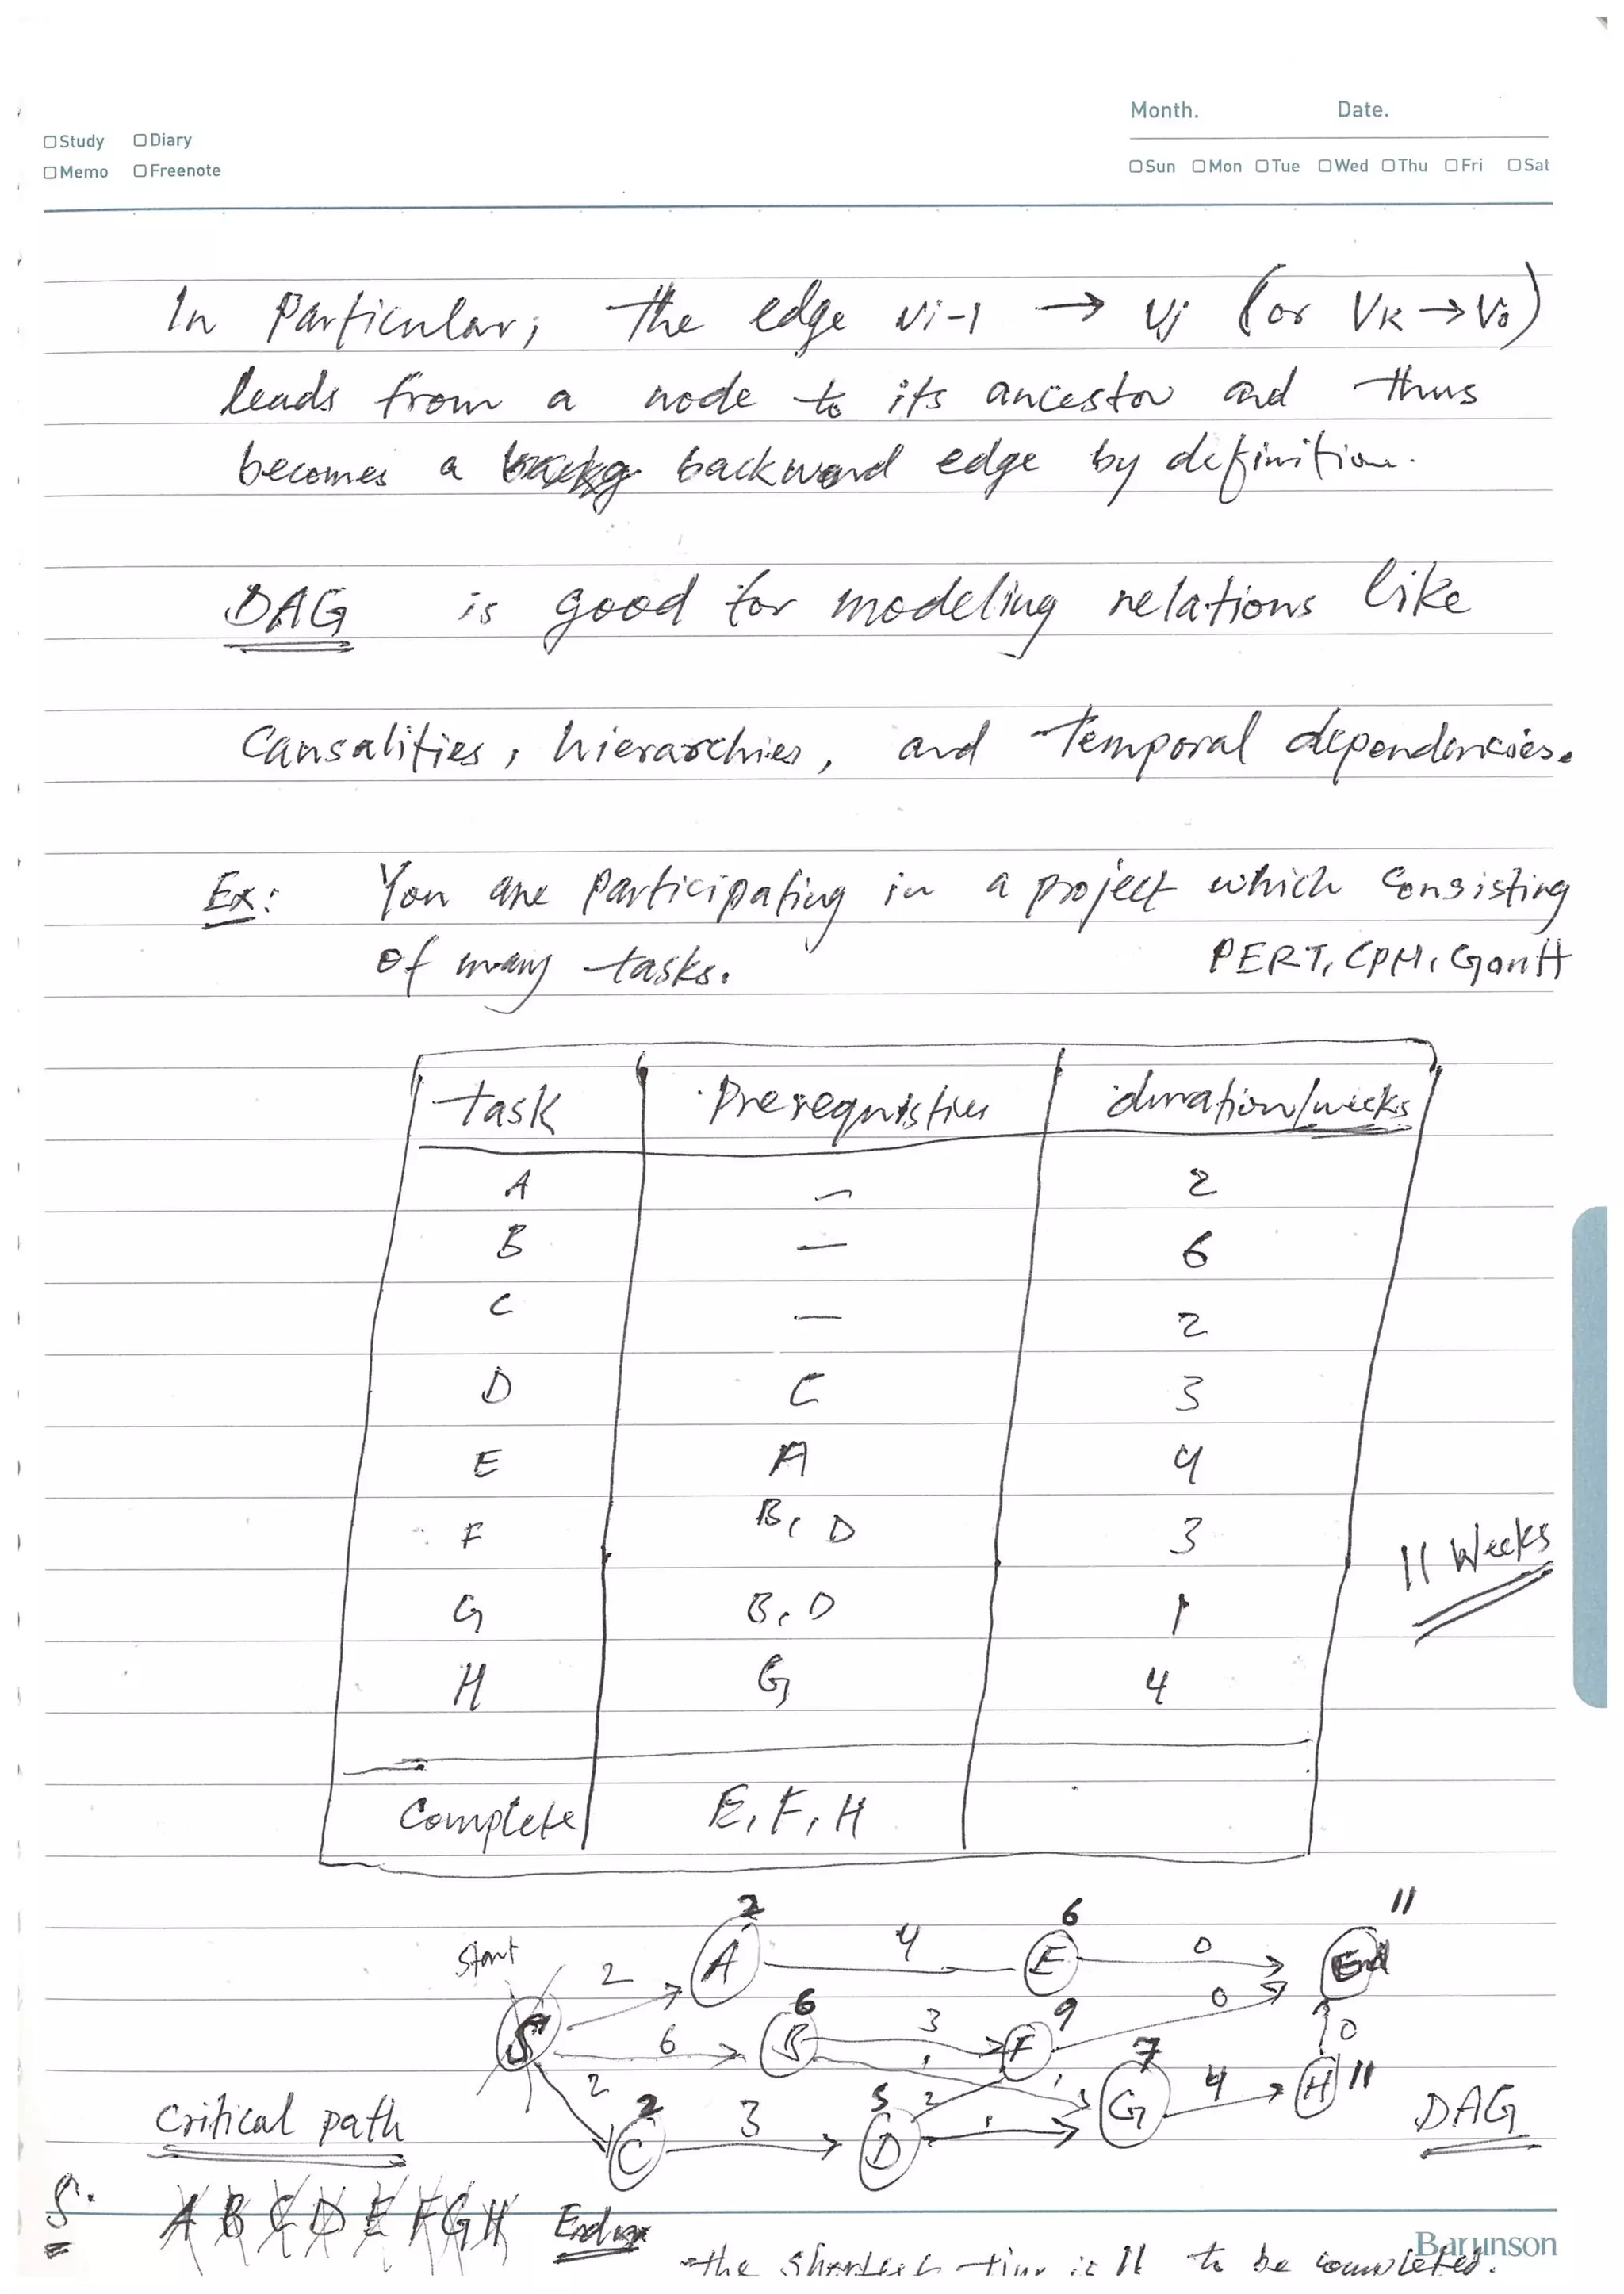 Month. Date.
□Study □Diary
□Memo □Freenote
□Sun □Mon □Tue □Wed □Thu □Fri □Sat
In Particular, the edge vi-1 → vj (or VK → V0)
leads from a node to its ancestor and thus
becomes a backward edge by definition.
DAG is good for modeling relations like
Causalities, hierarchies, and temporal dependencies.
Ex: You are participating in a project which consisting
of many tasks. PERT, CPM, Gantt
task Prerequisties duration/weeks
A — 2
B — 6
C — 2
D C 3
E A 4
F B, D 3
G B, D 1
11 Weeks
H G 4
Complete E, F, H
2 6 11
Start 2 A 4 E 0 End
S 6 6 B 3 F 9 0 0
2 1 1 7 4 H 11
Critical path 2 C 3 5 D 2 1 G DAG
S. A B C D E F G H End
Barunson
the shortest time is 11 to be completed.